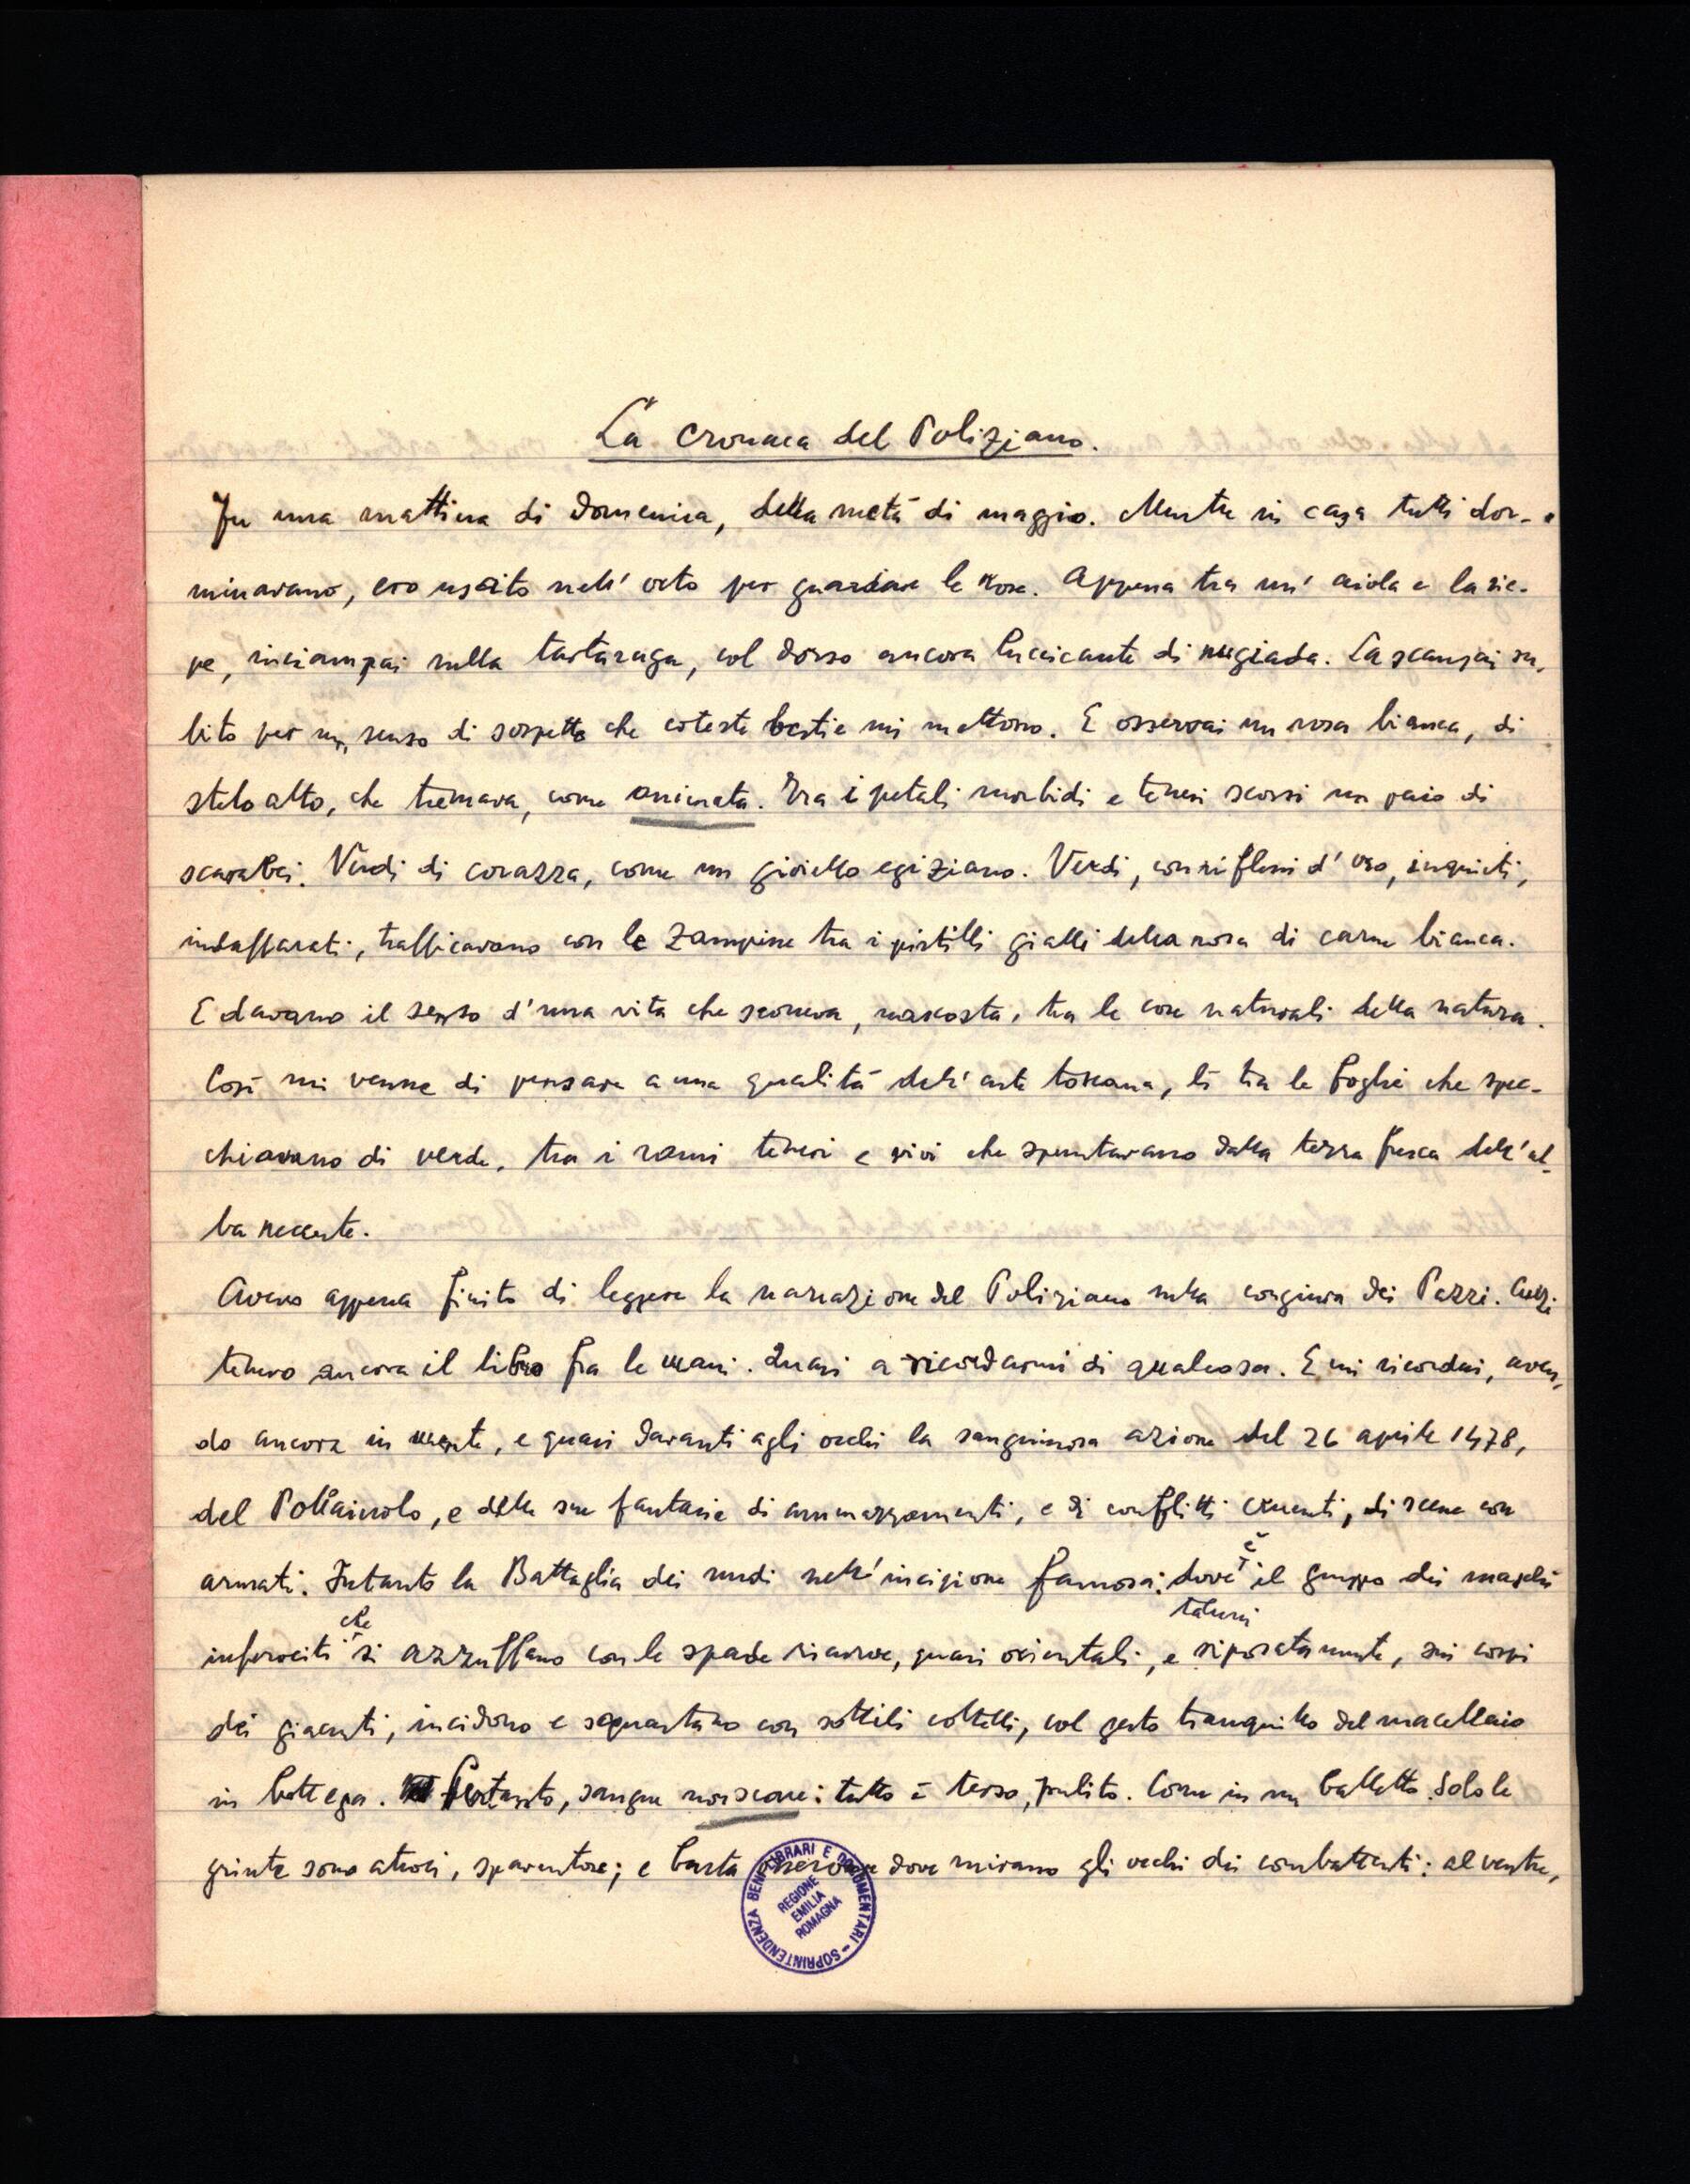 La Cronaca del Poliziano.
Fu una mattina di domenica, della metà di maggio. Mentre in casa tutti dor-
mivano, ero uscito nell'orto per guardare le rose. Appena tra un'aiola e la sie-
pe, inciampai nella tartaruga, col dorso ancora luccicante di rugiada. La scansai su-
bito per un senso di sospetto che coteste bestie mi mettono. E osservai un rosa bianca, di
stelo alto, che tremava, come animata. Tra i petali morbidi e teneri scorsi un paio di
scarabei. Verdi di corazza, come un gioiello egiziano. Verdi, con riflessi d'oro, inquieti,
indaffarati, trafficavano con le zampine tra i pistilli gialli della rosa di carne bianca.
E davano il senso d'una vita che scorreva, nascosta, tra le cose naturali della natura.
Così mi venne di pensare a una qualità dell'arte toscana, lì tra le foglie che spec-
chiavano di verde, tra i rami teneri e vivi che spuntavano dalla terra fresca dell'al-
ba recente.
Avevo appena finito di leggere la narrazione del Poliziano sulla congiura dei Pazzi. Anzi
tenevo ancora il libro fra le mani. Quasi a ricordarmi di qualcosa. E mi ricordai, aven-
do ancora in mente, e quasi davanti agli occhi la sanguinosa azione del 26 aprile 1478,
del Pollaiuolo, e delle sue fantasie di ammazzamenti, e di conflitti cruenti, di scene con
armati. Intanto la Battaglia dei nudi nell'incisione famosa: dove è il gruppo dei maschi
inferociti che si azzuffano con le spade ricurve, quasi orientali, e taluni riposatamente, sui corpi
dei giacenti, incidono e squartano con sottili coltelli, col gesto tranquillo del macellaio
in bottega. Pertanto, sangue non scorre: tutto è terso, pulito. Come in un balletto. Solo le
grinte sono atroci, spaventose; e basta dove mirano gli occhi dei combattenti: al ventre,
SOPRINTENDENZA BENI LIBRARI E DOCUMENTARI
REGIONE
EMILIA
ROMAGNA